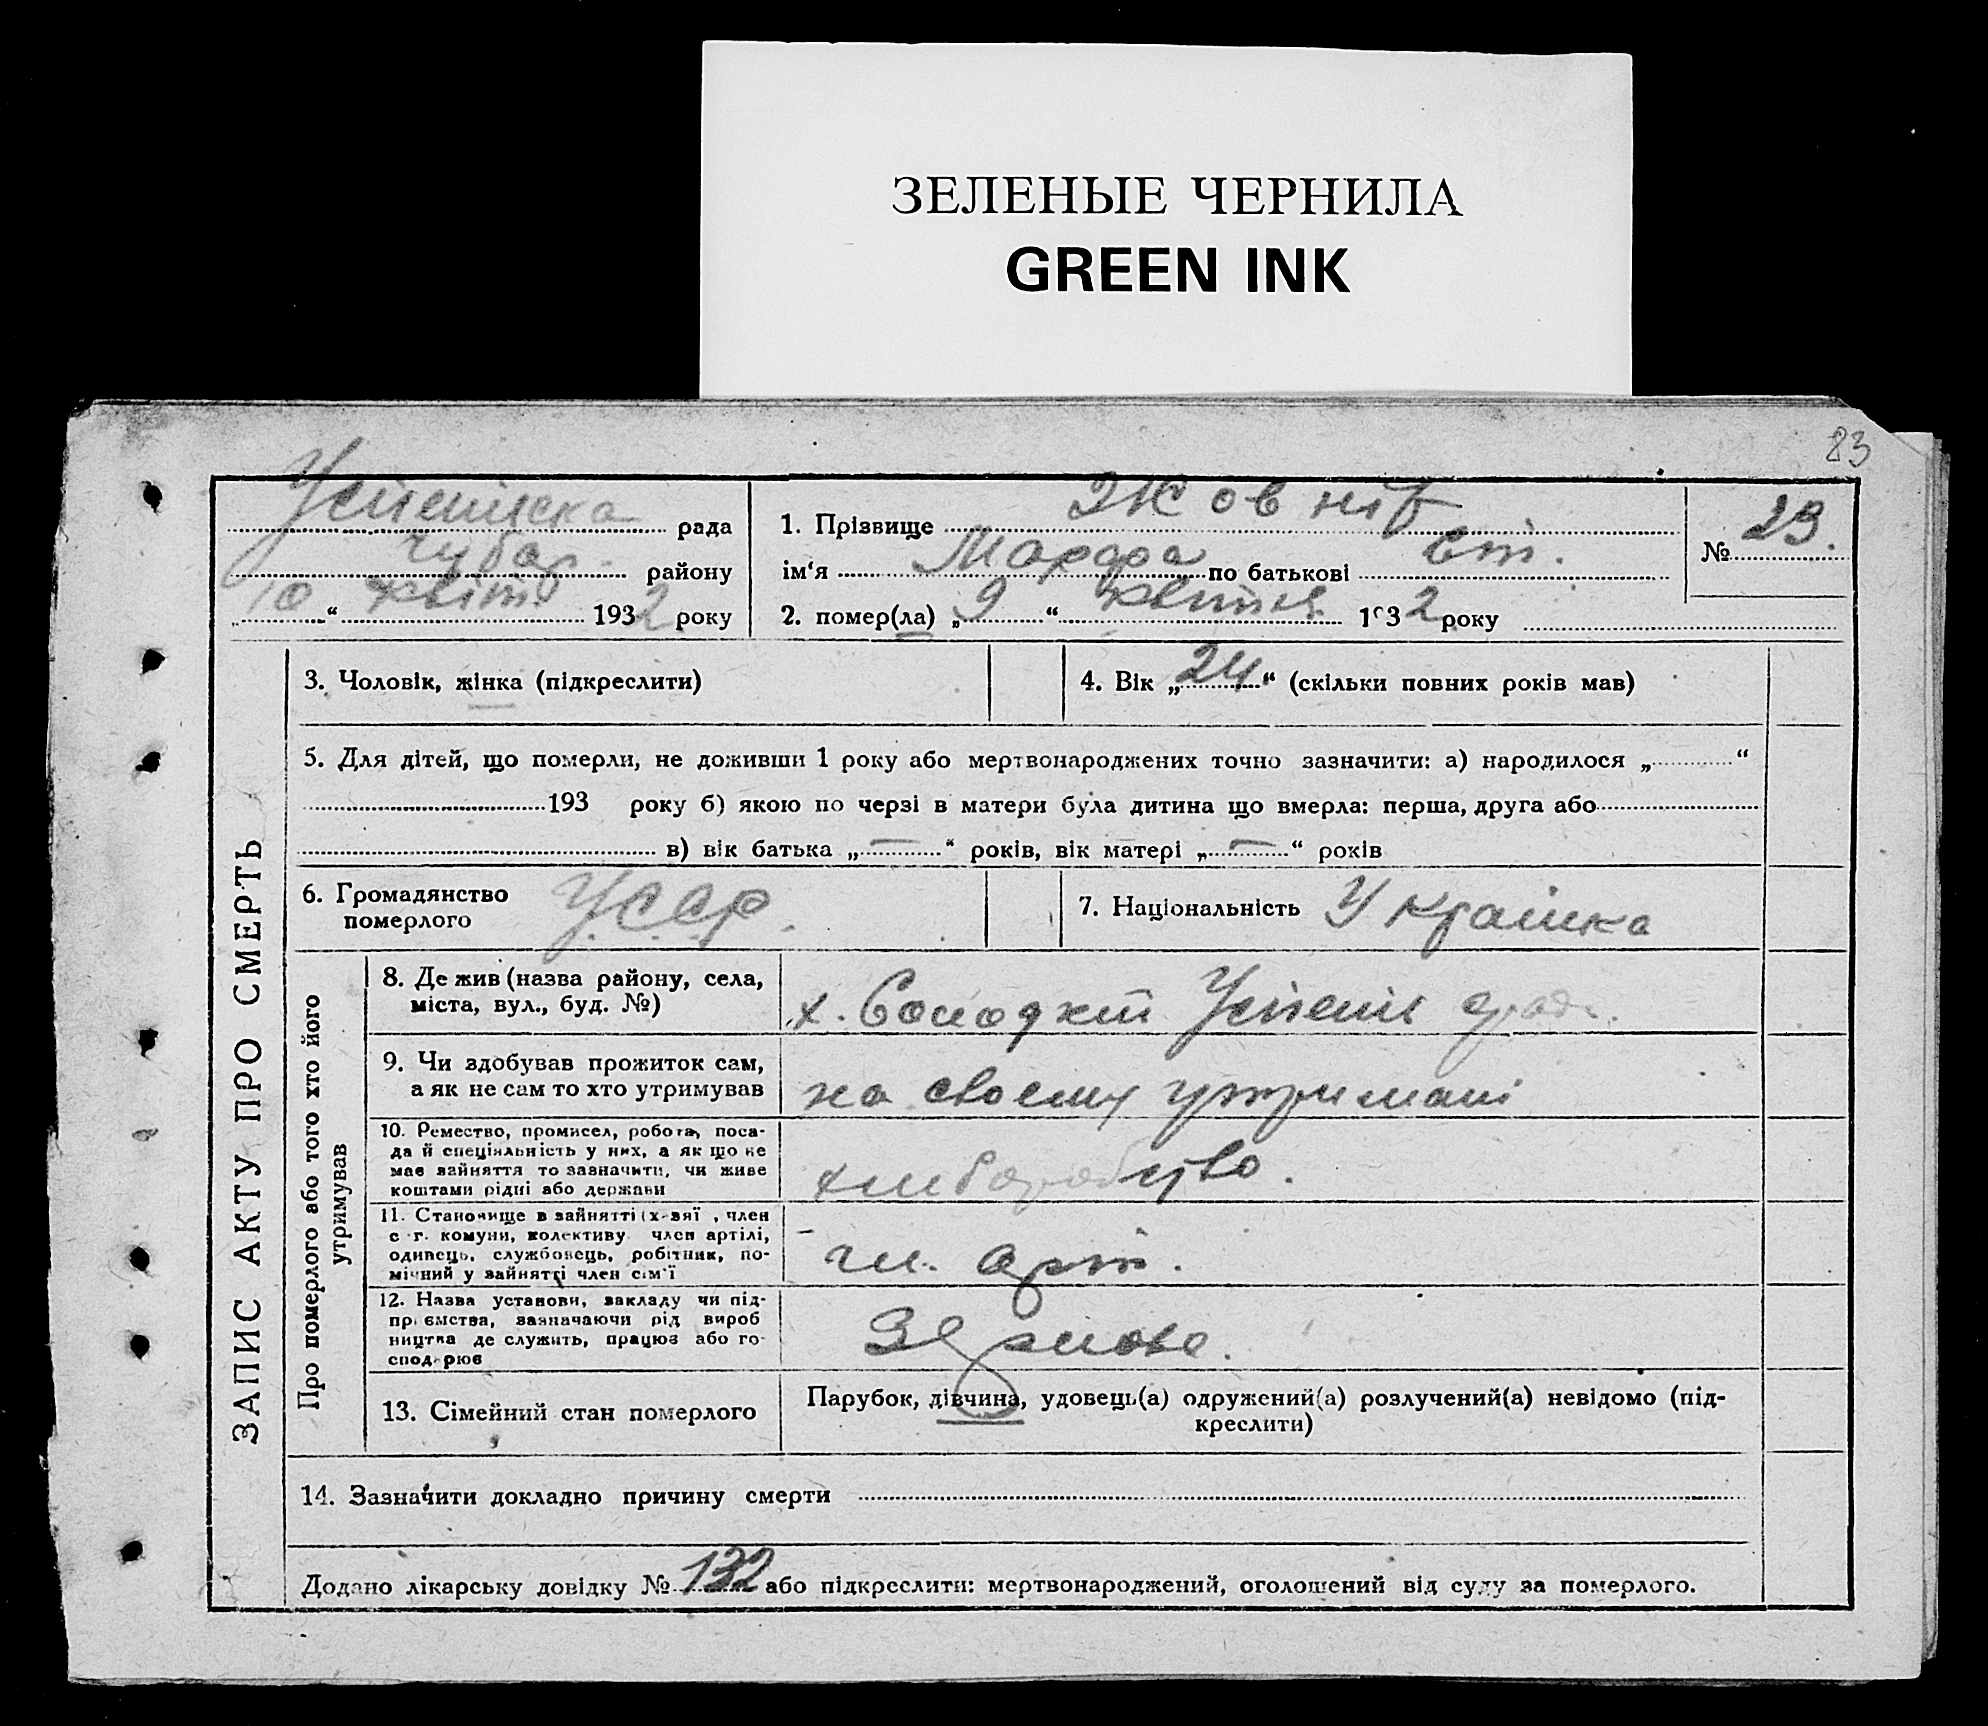 ЗЕЛЕНЫЕ ЧЕРНИЛА
GREEN INK
83
Успенiвска рада
Чубар. району
10 " квiт. 1932 року
1. Прізвище Жовнiр
ім‘я Марфа по батькові Єт.
2. помер(ла) „ 9 “ квiтня 1932 року
№ 29.
ЗАПИС АКТУ ПРО СМЕРТЬ
3. Чоловік, жінка (підкреслити)
4. Вік „ 24 “ (скільки повних років мав)
5. Для дітей, що померли, не доживши 1 року або мертвонароджених точно зазначити: а) народилося „ “
193 року б) якою по черзі в матери була дитина що вмерла: перша, друга або
в) вік батька „ — “ років, вік матері „ — “ років
6. Громадянство
померлого
У.С.С.р.
7. Національність Украінка
Про померлого або того хто його
утримував
8. Де жив (назва району, села,
міста, вул., буд. №)
х. Солодкiй Успенiв рад.
9. Чи здобував прожиток сам,
а як не сам то хто утримував
на своєму утримані
10. Ремество, промисел, робота, поса-
да й спеціяльність у них, а як що не
має зайняття то зазначити, чи живе
коштами рідні або держави
хлiборобство.
11. Становище в зайнятті (х-зяї , член
с-г. комуни, колективу член артілі,
одинець, службовець, робітник, по-
мічний у зайнятті член сім‘ї
чл. арт.
12. Назва установи, закладу чи під-
приємства, зазначаючи рід вироб
ництва де служить, працює або го-
сподарює
Зернове.
13. Сімейний стан померлого
Парубок, дівчина, удовець(а) одружений(а) розлучений(а) невідомо (під-
креслити)
14. Зазначити докладно причину смерти
Додано лікарську довідку № 132 або підкреслити: мертвонароджений, оголошений від суду за померлого.